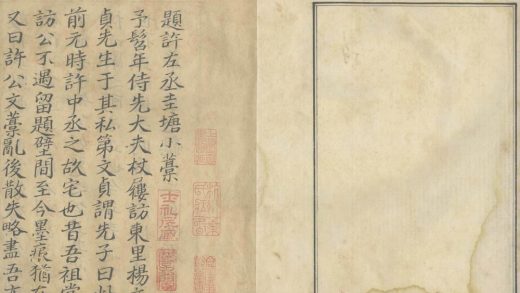 題許左丞圭塘小藁
予髫年侍先大夫杖屨訪東里楊文
貞先生于其私第文貞謂先子曰
前元時許中丞之故宅也昔吾祖
訪公不遇留題壁間至今墨痕猶在
又曰許公文藁亂後散失略盡吾
士礼居藏